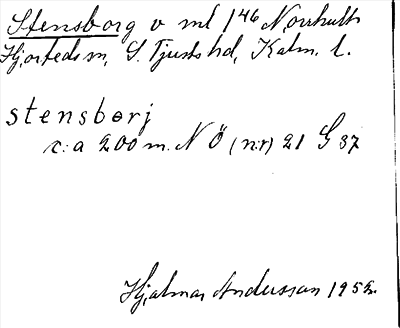 Stensborg v ml 1⁴⁶ Norrhult
Hjorteds sn, S. Tjusts hd, Kalm. l.
stensborj
c:a 200 m. NÖ (nr) 21 G 37
Hjalmar Andersson 1952.